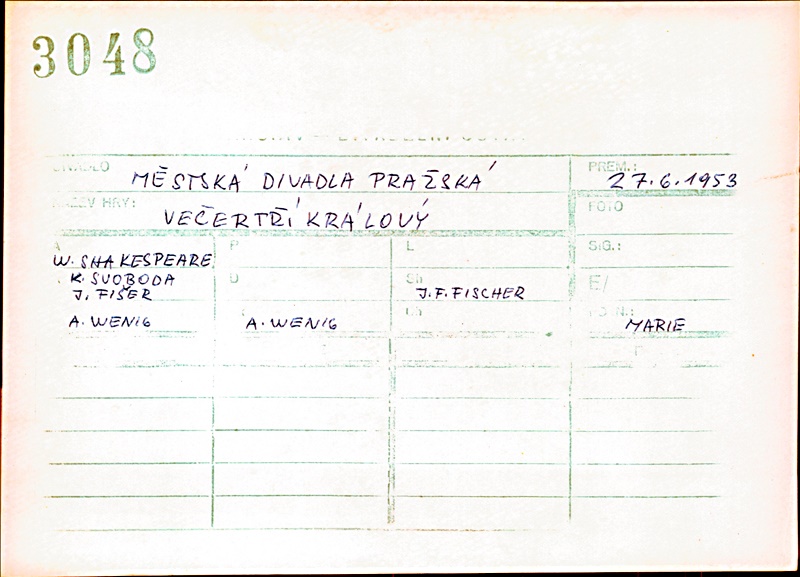 3048
MĚSTSKÁ DIVADLA PRAŽSKÁ
PREM.: 27.6.1953
NÁZEV HRY: VEČERTŘÍ KRÁLOVÝ
FOTO
A P L SIG.:
W. SHAKESPEARE
K. SVOBODA D Sh E/
J. FIŠER J.F. FISCHER
A. WENIG A. WENIG MARIE